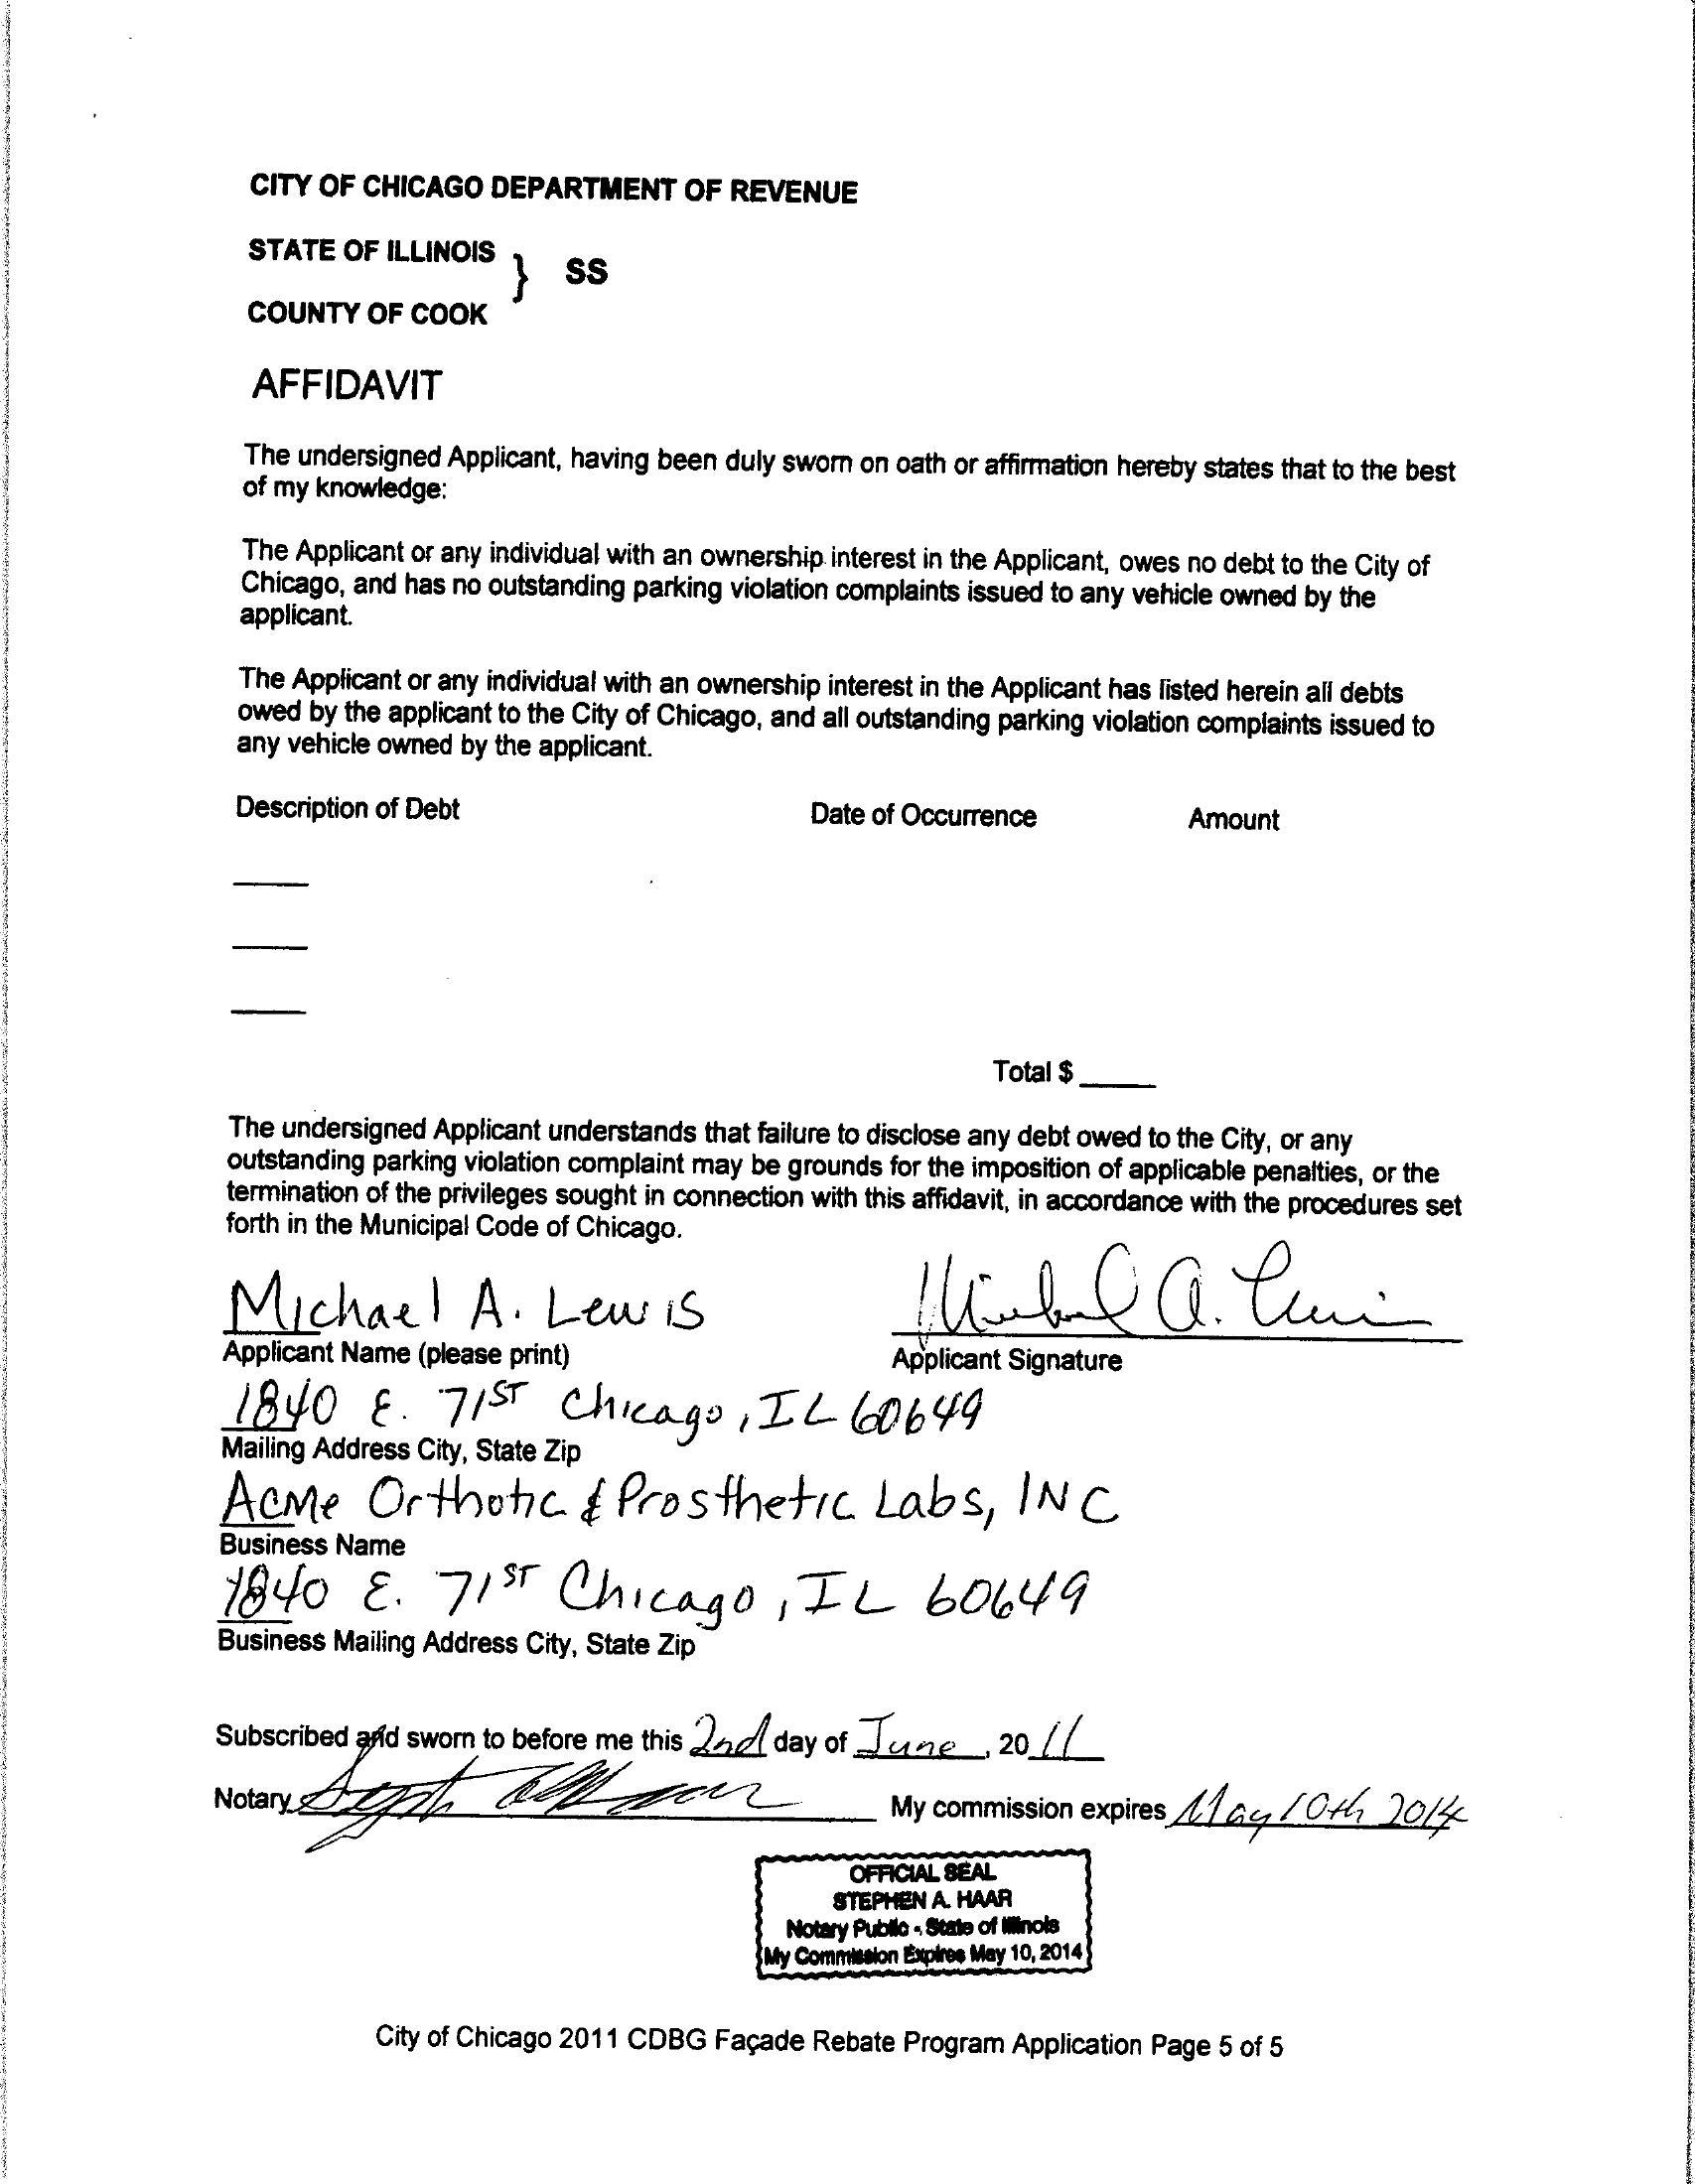 CITY OF CHICAGO DEPARTMENT OF REVENUE
STATE OF ILLINOIS
} SS
COUNTY OF COOK
AFFIDAVIT
The undersigned Applicant, having been duly sworn on oath or affirmation hereby states that to the best
of my knowledge:
The Applicant or any individual with an ownership interest in the Applicant, owes no debt to the City of
Chicago, and has no outstanding parking violation complaints issued to any vehicle owned by the
applicant.
The Applicant or any individual with an ownership interest in the Applicant has listed herein all debts
owed by the applicant to the City of Chicago, and all outstanding parking violation complaints issued to
any vehicle owned by the applicant.
Description of Debt Date of Occurrence Amount
Total $
The undersigned Applicant understands that failure to disclose any debt owed to the City, or any
outstanding parking violation complaint may be grounds for the imposition of applicable penalties, or the
termination of the privileges sought in connection with this affidavit, in accordance with the procedures set
forth in the Municipal Code of Chicago.
Michael A. Lewis Michael A. Lewis
Applicant Name (please print) Applicant Signature
1840 E. 71ST Chicago, IL 60649
Mailing Address City, State Zip
Acme Orthotic & Prosthetic Labs, INC
Business Name
1840 E. 71ST Chicago, IL 60649
Business Mailing Address City, State Zip
Subscribed and sworn to before me this 2nd day of June, 2011
Notary My commission expires May 10th 2014
OFFICIAL SEAL
STEPHEN A. HAAR
Notary Public - State of Illinois
My Commission Expires May 10, 2014
City of Chicago 2011 CDBG Façade Rebate Program Application Page 5 of 5